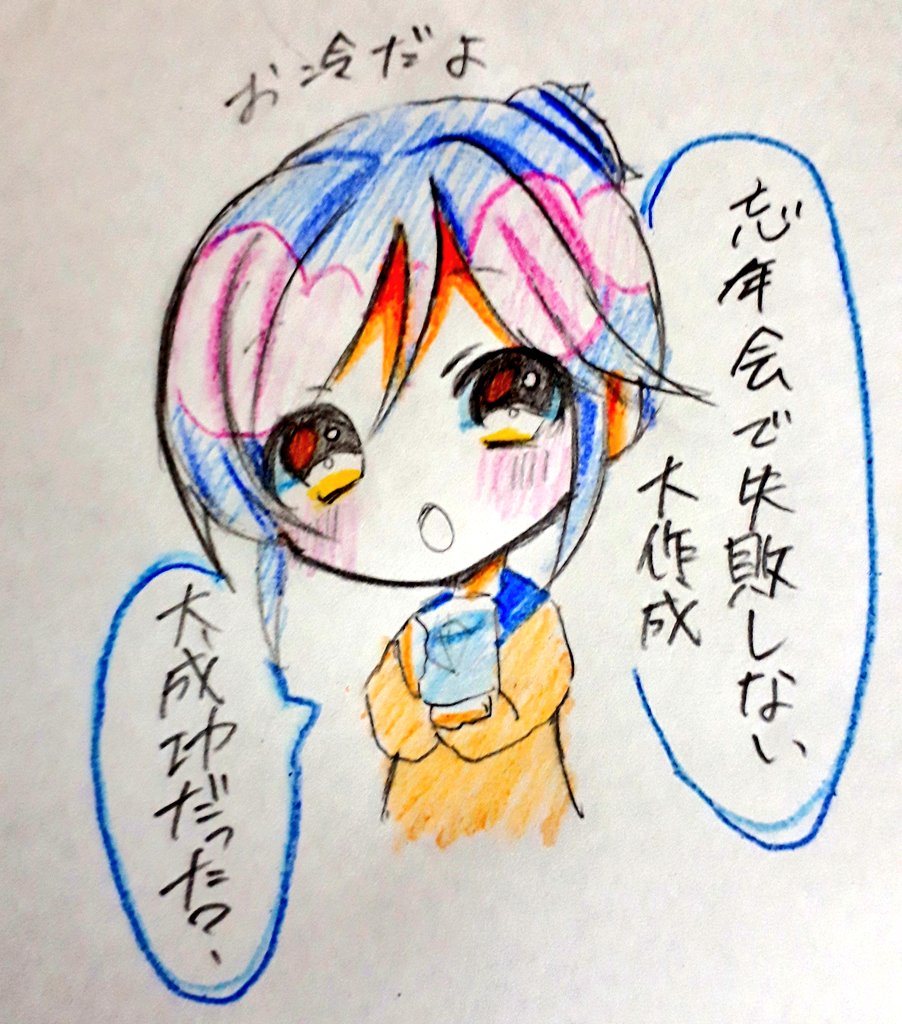 お冷だよ
忘年会で失敗しない
大作成
大成功だった?